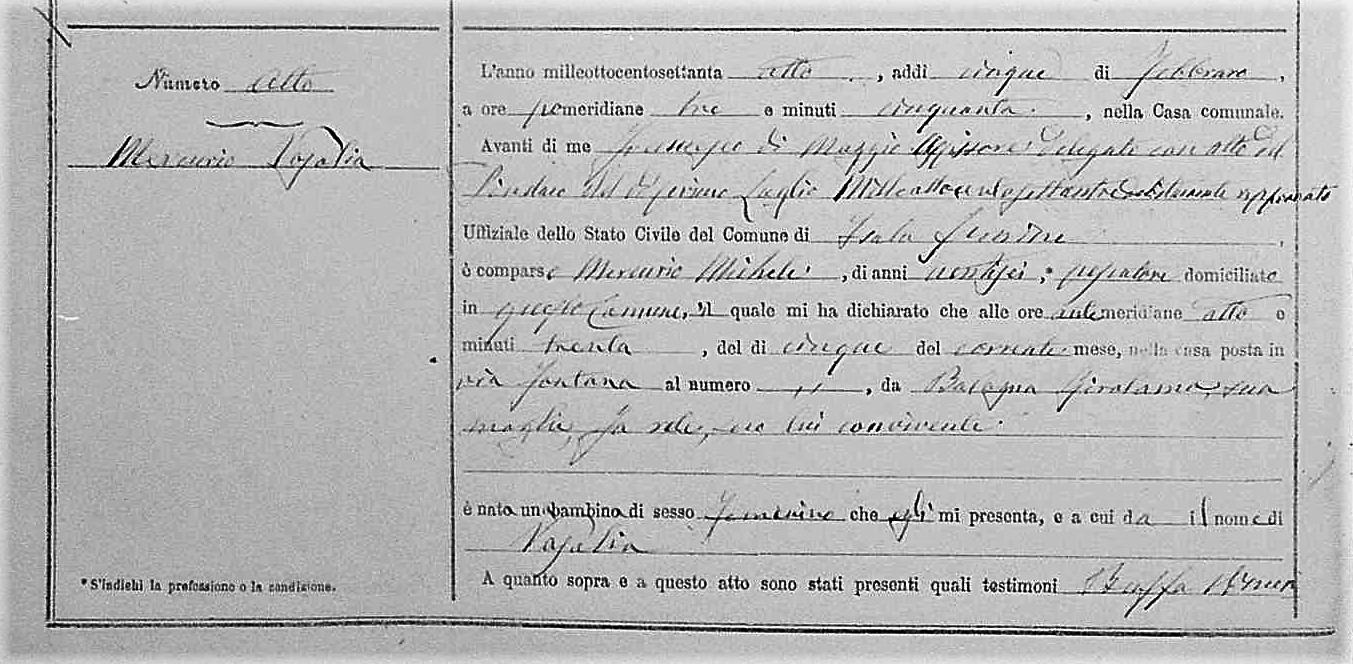 Numero otto
Mercurio Rosalia
*S'indichi la professione o la condizione.
L'anno millеottocentosettanta otto, addi cinque di Febbraro,
a ore pomeridiane tre e minuti cinquanta, nella Casa comunale.
Avanti di me Giuseppe di Maggio Assessore Delegato con atto del
Sindaco del di primo Luglio Milleottocentosettantasette debitamente approvato
Uffiziale dello Stato Civile del Comune di Isola Femine,
è comparso Mercurio Michele, di anni ventisei,* pescatore domiciliato
in questo Comune, il quale mi ha dichiarato che alle ore antemeridiane otto e
minuti trenta, del di cinque del corrente mese, nella casa posta in
via Fontana al numero ,, , da Bologna Girolama, sua
moglie, con lui convivente.
è nata una bambina di sesso femminino che egli mi presenta, e a cui da il nome di
Rosalia
A quanto sopra e a questo atto sono stati presenti quali testimoni Buffa